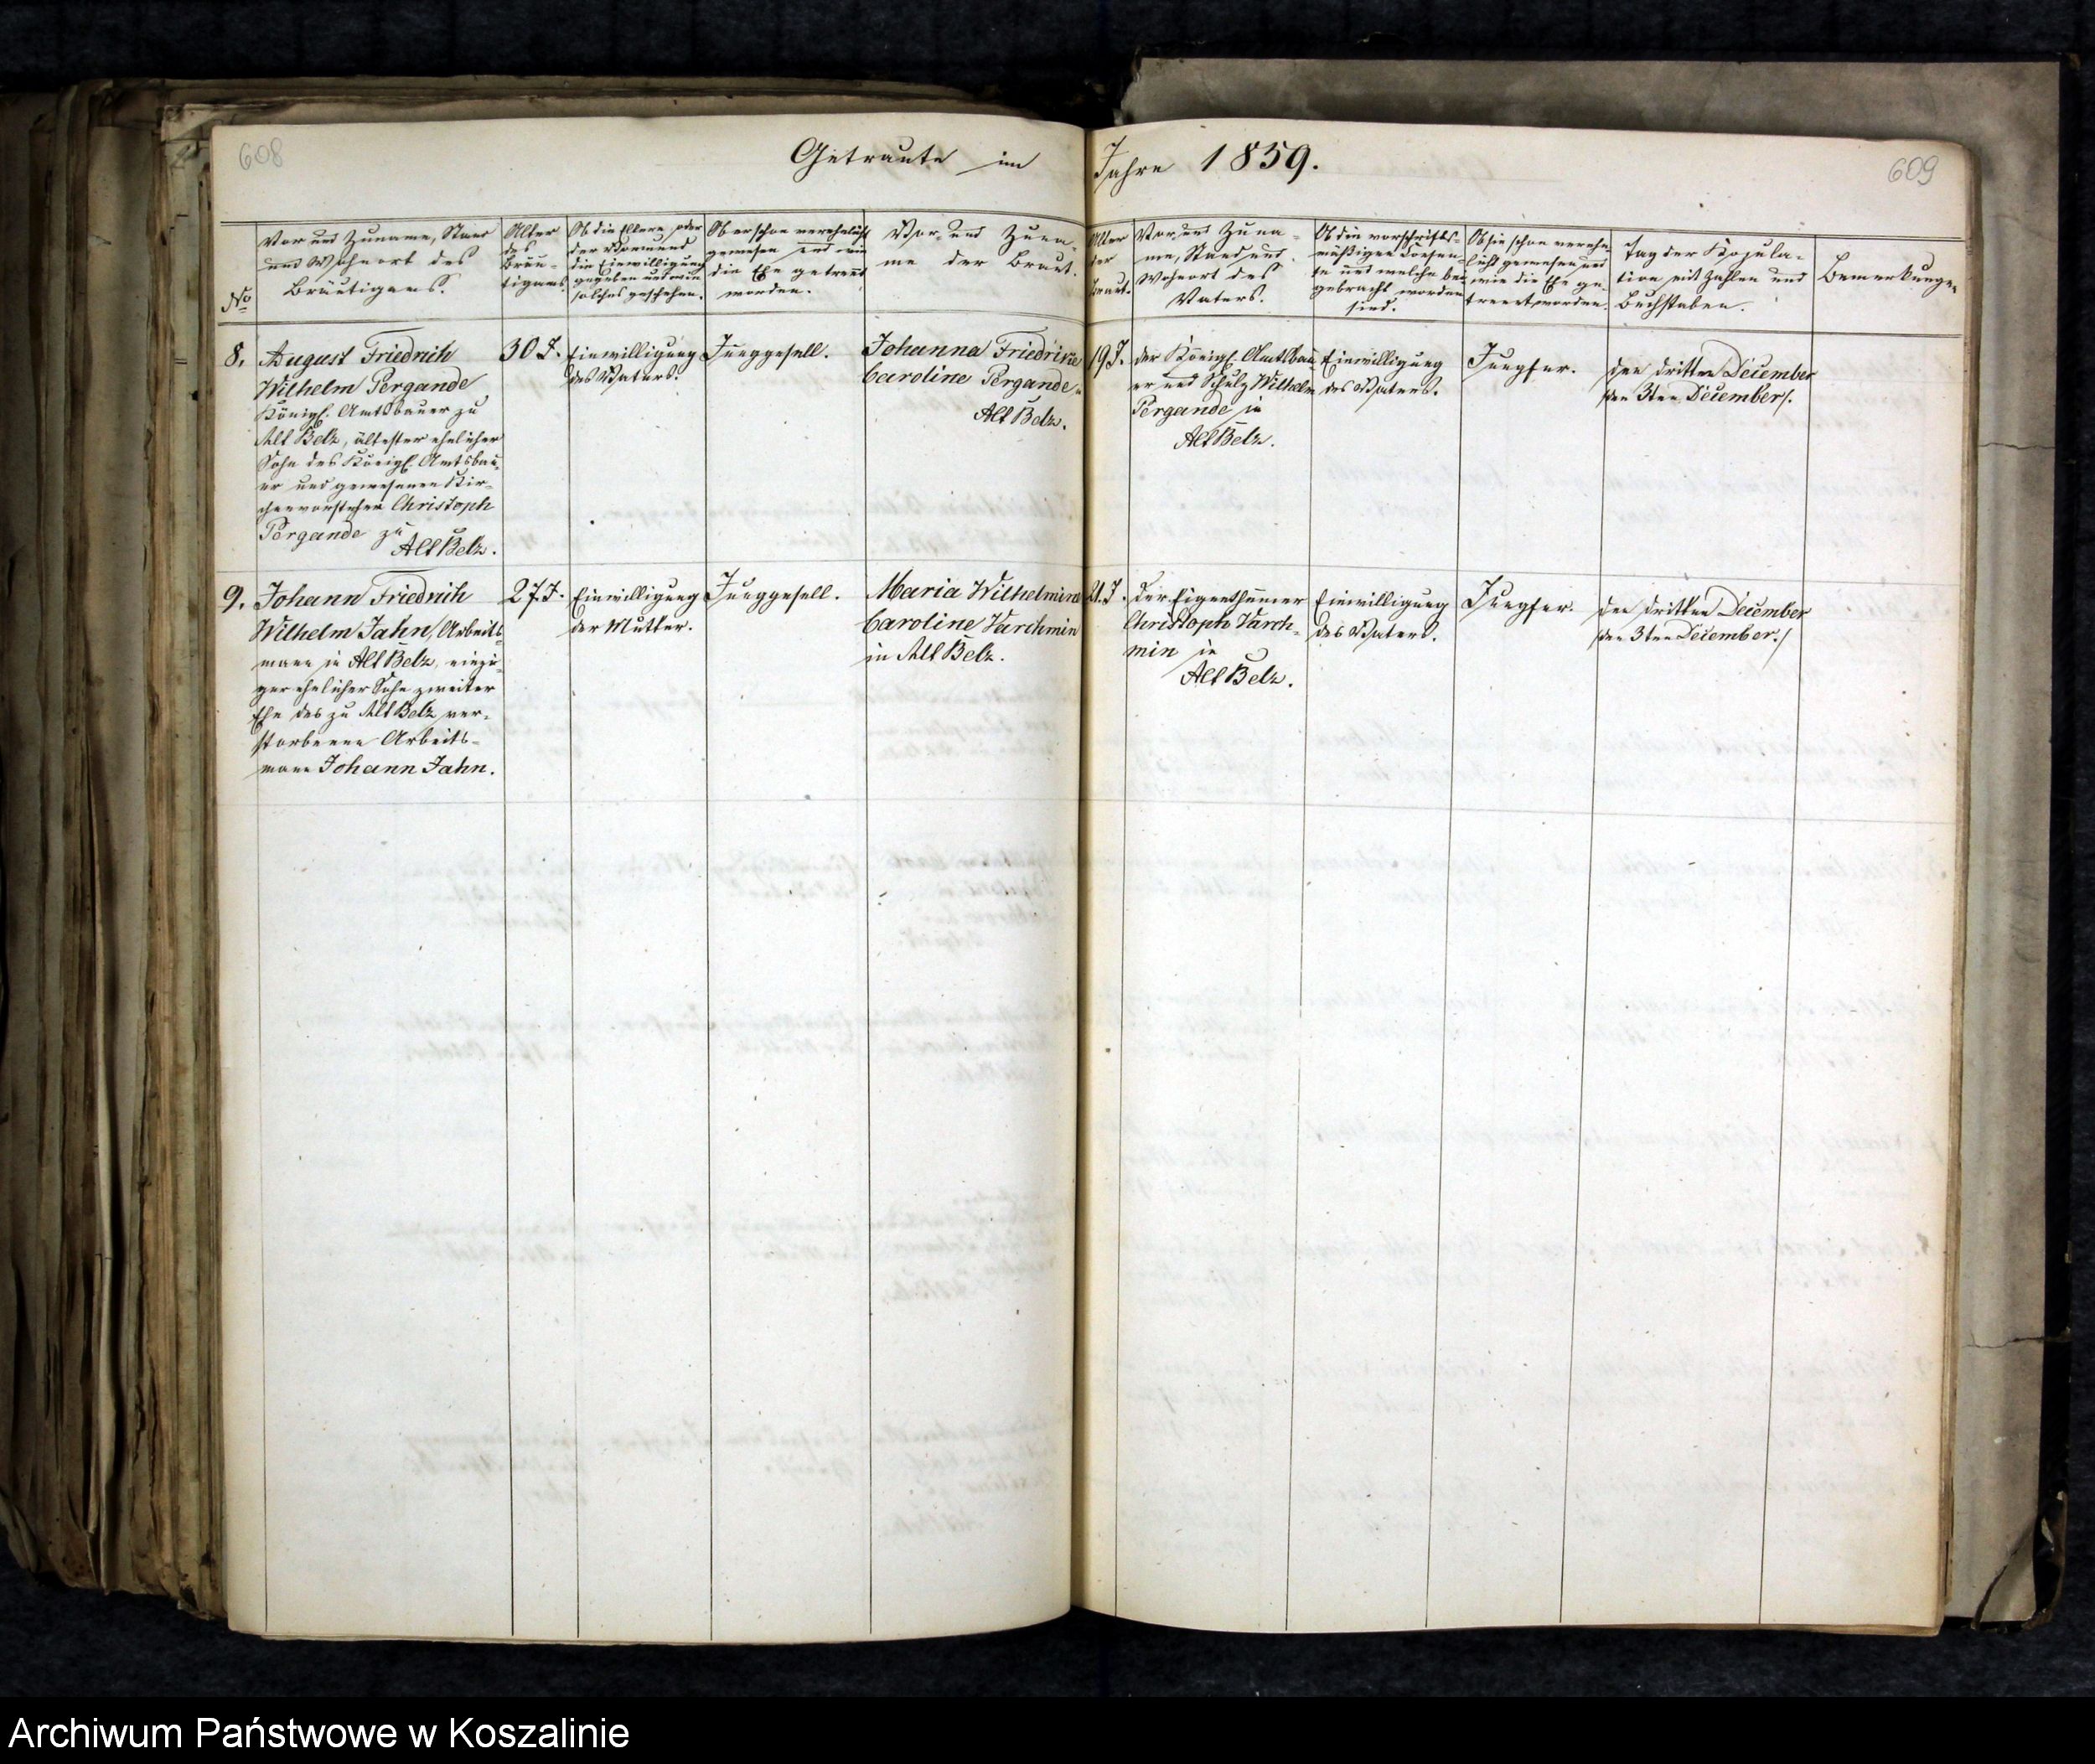 608
Getraute im Jahre 1859.
609
No
Vor und Zuname, Stand
und Wohnort des
Bräutigams.
Alter
des
Bräu-
tigams.
Ob die Eltern oder
der Vormund
die Einwilligung
gegeben und wie
solches geschehen.
Ob er schon verehelicht
gewesen und wie
die Ehe getrennt
worden.
Vor- und Zuna-
me der Braut.
Alter
der
Braut.
Vor und Zuna-
me, Stand und
Wohnort des
Vaters.
Ob die vorschrifts-
mäßigen Consen-
se und welche bei-
gebracht worden
sind.
Ob sie schon verehe-
licht gewesen und
wie die Ehe ge-
trennt worden.
Tag der Kopula-
tion mit Zahlen und
Buchstaben.
Bemerkungen
8.
August Friedrich
Wilhelm Pergande
Königl. Amtsbauer zu
Alt Belz, ältester ehelicher
Sohn des Königl. Amtsbau-
er und gewesenen Kir-
chenvorsteher Christoph
Pergande zu
Alt Belz.
30 J.
Einwilligung
des Vaters.
Junggesell.
Johanna Friedrike
Caroline Pergande in
Alt Belz.
19 J.
der Königl. Amtsbau-
er und Schulz Wilhelm
Pergande in
Alt Belz.
Einwilligung
des Vaters.
Jungfer.
den dritten December
/den 3ten December/.
9.
Johann Friedrich
Wilhelm Jahn, Arbeits-
mann in Alt Belz, einzi-
ger ehelicher Sohn zweiter
Ehe des zu Alt Belz ver-
storbenen Arbeits-
mann Johann Jahn.
27 J.
Einwilligung
der Mutter.
Junggesell.
Maria Wilhelmine
Caroline Varchmin
in Alt Belz.
21. J.
der Eigenthümer
Christoph Varch-
min in
Alt Belz.
Einwilligung
des Vaters.
Jungfer.
den dritten December
/den 3ten December./
Archiwum Państwowe w Koszalinie